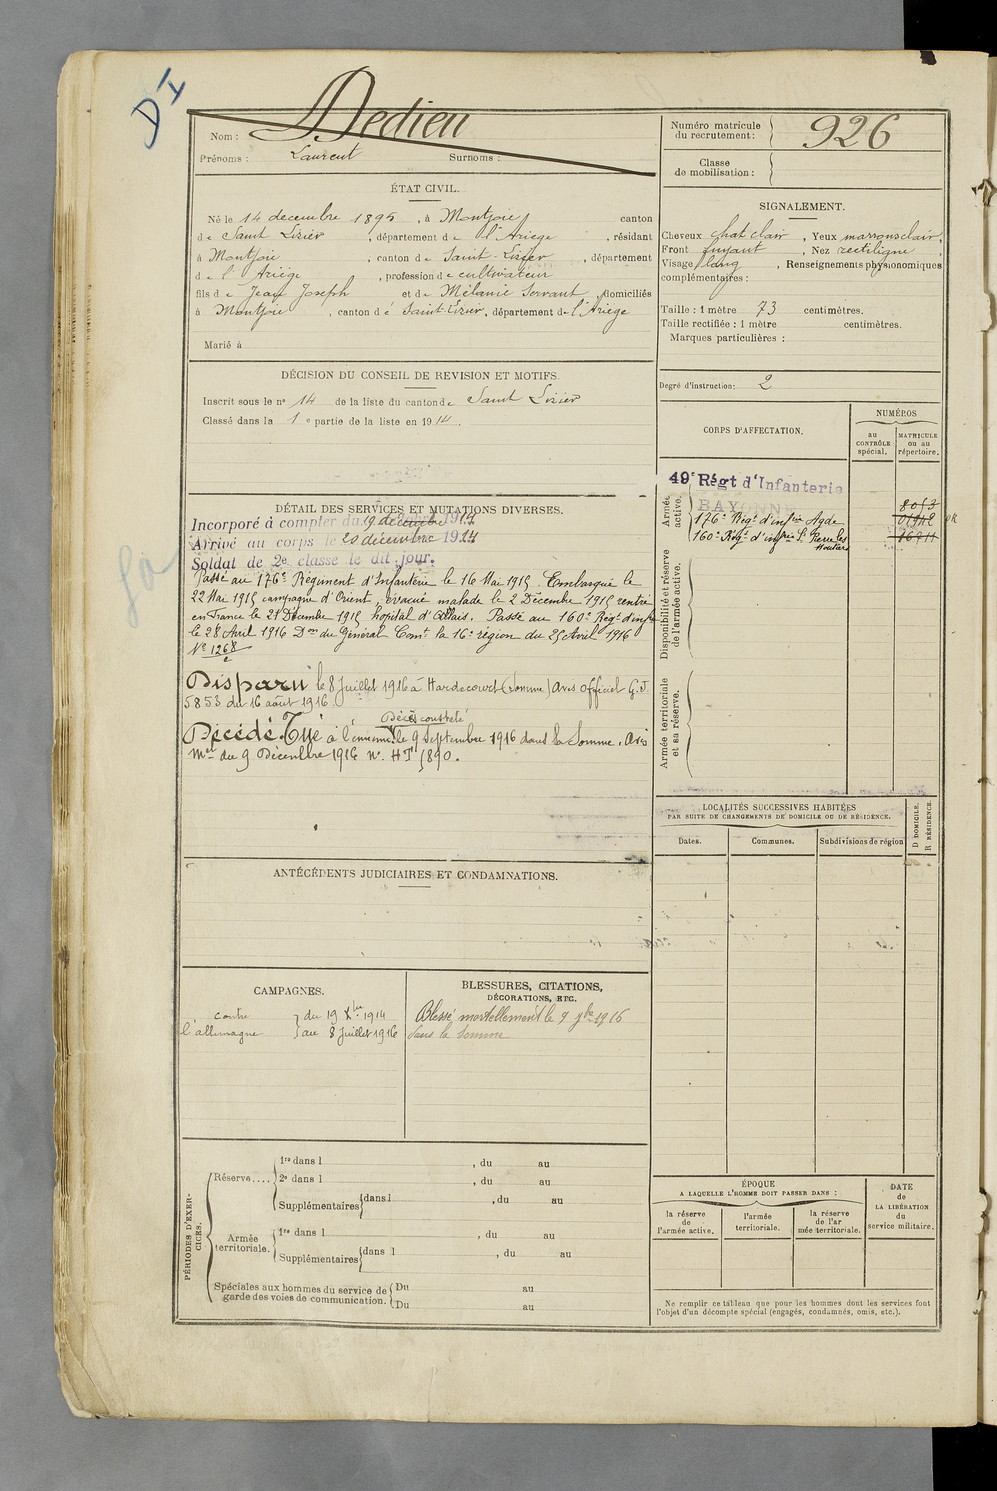 DI
Nom : Dedieu
Prénoms : Laurent Surnoms :
Numéro matricule du recrutement : 926
Classe de mobilisation :
ÉTAT CIVIL.
Né le 14 decembre 1895, à Montjoie canton
de Saint Lizier, département de l'Ariege, résidant
à Montjoie, canton de Saint-Lizier, département
de l'Ariège, profession de cultivateur
fils de Jean Joseph et de Mélanie Servant, domiciliés
à Montjoie, canton de Saint-Lizier, département de l'Ariege
Marié à
SIGNALEMENT.
Cheveux chat clair, Yeux marrons clair,
Front fuyant, Nez rectiligne,
Visage long, Renseignements physionomiques
complémentaires :
Taille : 1 mètre 73 centimètres.
Taille rectifiée : 1 mètre centimètres.
Marques particulières :
Degré d'instruction : 2
DÉCISION DU CONSEIL DE REVISION ET MOTIFS.
Inscrit sous le n° 14 de la liste du canton de Saint Lizier
Classé dans la 1e partie de la liste en 1914.
CORPS D'AFFECTATION.
NUMÉROS
au CONTRÔLE spécial.
MATRICULE ou au répertoire.
Armée active.
49e Régt d'Infanterie
BAYONNE 8053
176e Régt d'infie Agde
160e Régt d'infie
Disponibilité et réserve de l'armée active.
Armée territoriale et sa réserve.
DÉTAIL DES SERVICES ET MUTATIONS DIVERSES.
Incorporé à compter du 19 decembre 1914
Arrivé au corps le 20 décembre 1914
Soldat de 2e classe le dit jour.
Passé au 176e Régiment d'Infanterie le 16 Mai 1915. Embarqué le
22 Mai 1915 campagne d'Orient, évacué malade le 2 Décembre 1915 rentré
en France le 21 Décembre 1915 hopital d'Allais. Passé au 160e Régt d'infie
le 28 Avril 1916 Don du Général Comt la 16e région du 25 Avril 1916
N° 1268
Disparu le 8 Juillet 1916 à Hardecourt (Somme) Avis officiel G.J.
5853 du 16 août 1916
Décès constaté
Décédé. Tué à l'ennemi le 9 Septembre 1916 dans la Somme. Avis
Mel du 9 Décembre 1916 n° HT 1890.
LOCALITÉS SUCCESSIVES HABITÉES
PAR SUITE DE CHANGEMENTS DE DOMICILE OU DE RÉSIDENCE.
Dates. Communes. Subdivisions de région
D DOMICILE.
R RÉSIDENCE.
ANTÉCÉDENTS JUDICIAIRES ET CONDAMNATIONS.
CAMPAGNES.
contre l'allemagne
du 19 Xbre 1914
au 8 Juillet 1916
BLESSURES, CITATIONS,
DÉCORATIONS, ETC.
Blessé mortellement le 9 7bre 1916
dans la Somme
PÉRIODES D'EXERCICES.
Réserve....
1re dans l , du au
2e dans l , du au
Supplémentaires dans l , du au
Armée territoriale.
1re dans l , du au
Supplémentaires dans l , du au
Spéciales aux hommes du service de garde des voies de communication.
Du au
Du au
ÉPOQUE
A LAQUELLE L'HOMME DOIT PASSER DANS :
la réserve de l'armée active.
l'armée territoriale.
la réserve de l'armée territoriale.
DATE de LA LIBÉRATION du service militaire.
Ne remplir ce tableau que pour les hommes dont les services font
l'objet d'un décompte spécial (engagés, condamnés, omis, etc.).